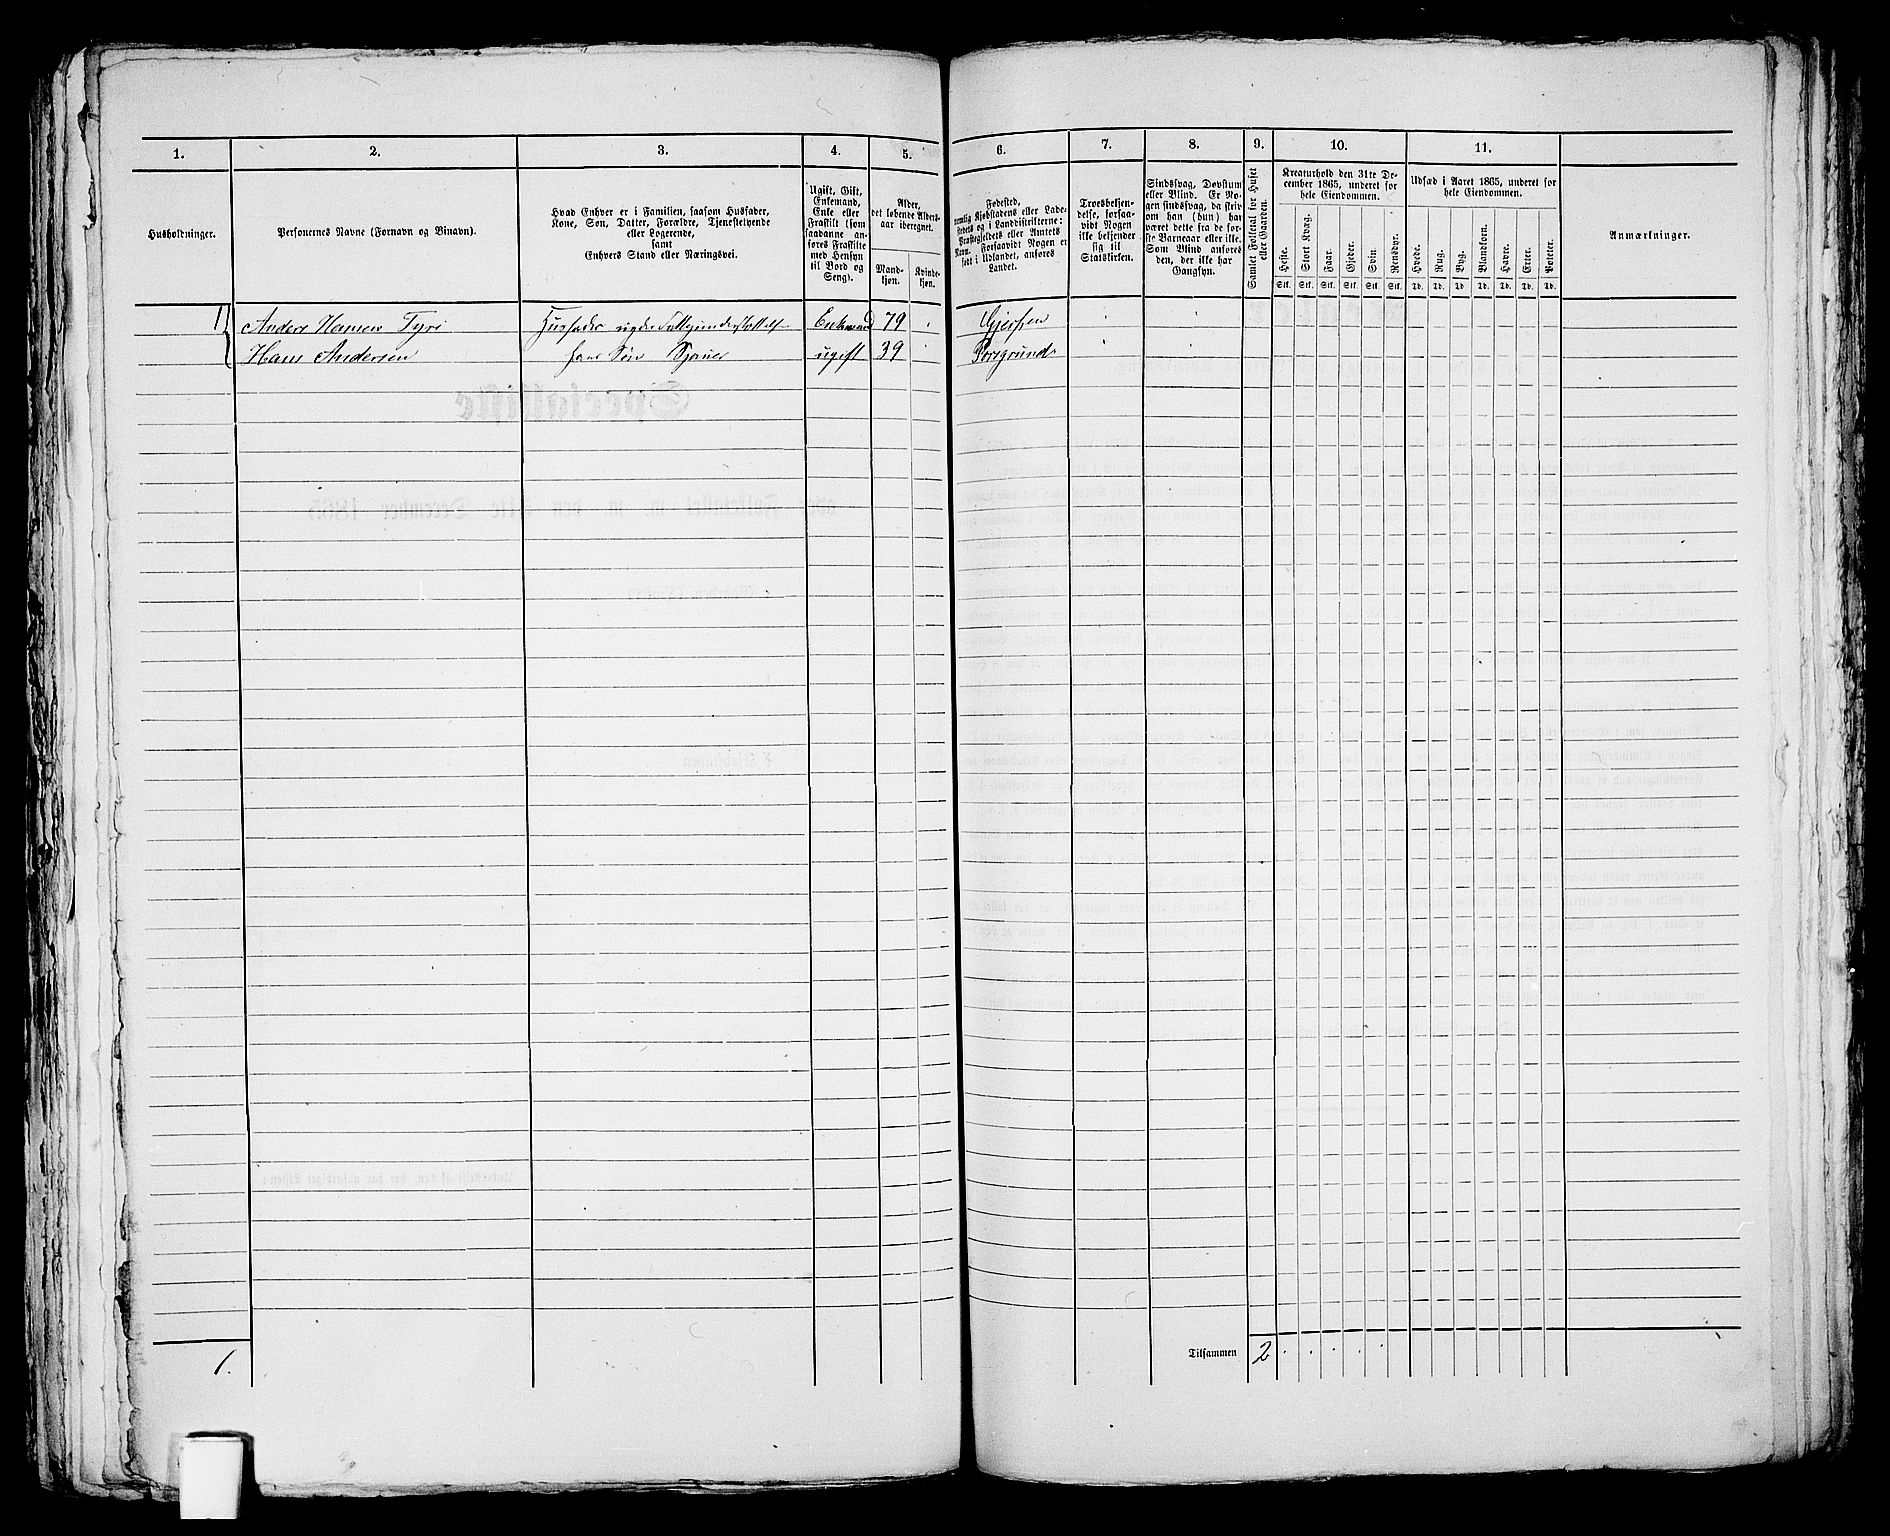 1. 2. 3. 4. 5. 6. 7. 8. 9. 10. 11.
Husholdninger.
Personernes Navne (Fornavn og Binavn).
Hvad Enhver er i Familien, saasom Husfader,
Kone, Søn, Datter, Forældre, Tjenestetyende
eller Logerende,
samt
Enhvers Stand eller Næringsvei.
Ugift, Gift,
Enkemand,
Enke eller
Fraskilt (som
saadanne an-
føres Fraskilte
med Hensyn
til Bord og
Seng).
Alder,
det løbende Alders-
aar iberegnet.
Mand-
kjøn.
Kvinde-
kjøn.
Fødested,
nemlig Kjøbstadens eller Lade-
stedets og i Landdistrikterne:
Præstegjeldets eller Amtets
Navn. Forsaavidt Nogen er
født i Udlandet, anføres
Landet.
Troesbekjen-
delse, forsaa-
vidt Nogen
ikke bekjender
sig til
Statskirken.
Sindssvag, Døvstum
eller Blind. Er No-
gen sindssvag, da skriv
om han (hun) har
været dette fra de før-
ste Barneaar eller ikke.
Som Blind anføres
den, der ikke har
Gangsyn.
Samlet Folketal for Huset
eller Gaarden.
Kreaturhold den 31te De-
cember 1865, underet for
hele Eiendommen.
Heste. Stort Kvæg. Faar. Gjeder. Svin. Rensdyr.
Stk. Stk. Stk. Stk. Stk. Stk.
Udsæd i Aaret 1865, underet for
hele Eiendommen.
Hvede. Rug. Byg. Blandkorn. Havre. Erter. Poteter.
Td. Td. Td. Td. Td. Td. Td.
Anmærkninger.
1 Anders Hansen Tyri Husfader nyder Enkemand 79 Gjerpen
Hans Andersen hans Søn Sjouer ugift 39 Porsgrund
1. Tilsammen 2